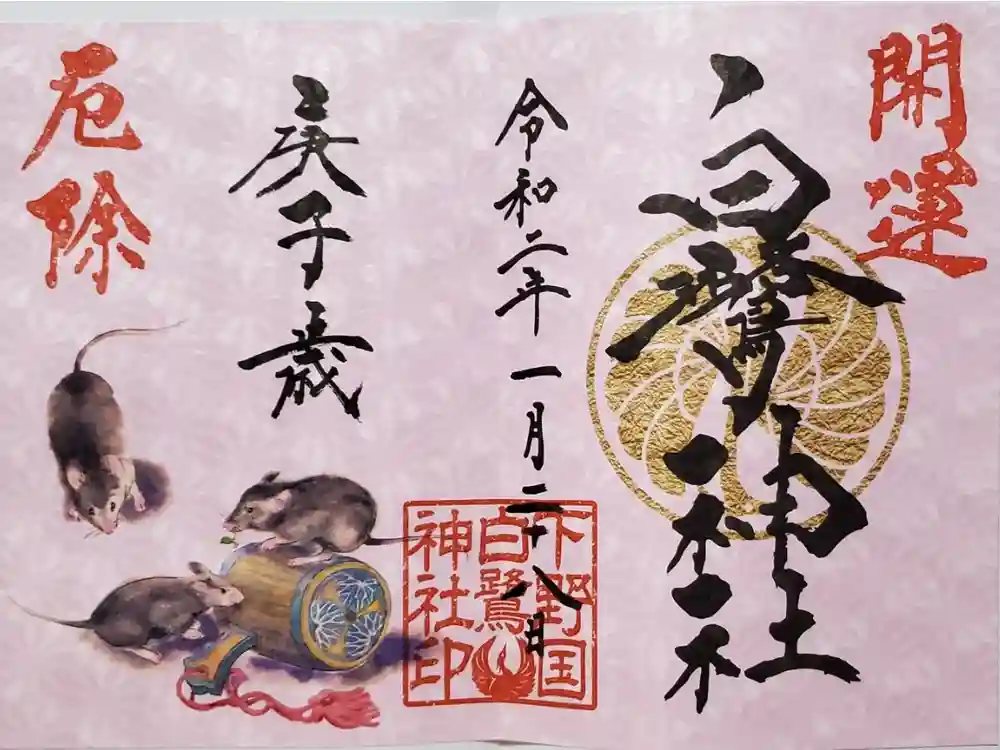 開運
白鷺神社
令和二年一月二十八日
下野国
白鷺
神社印
庚子歳
厄除